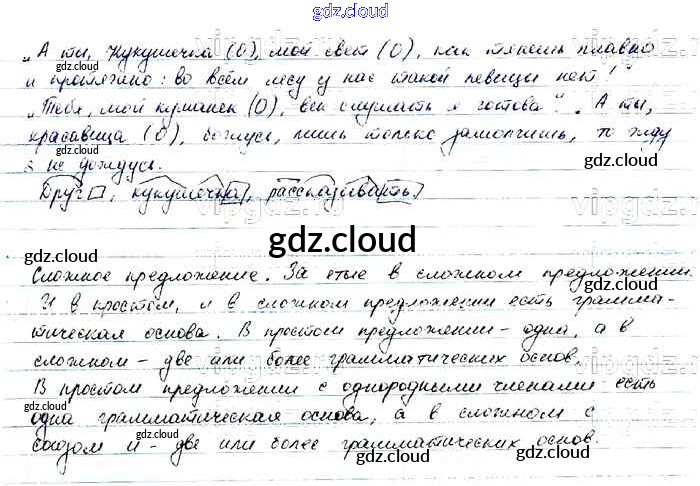 gdz.cloud
„А ты, Кукушечка (О), мой свет (О), как тянешь плавно
и протяжно: во всём лесу у нас такой певицы нет!"
„Тебя, мой куманек (О), век слушать я готова". „А ты,
красавица (О), божусь, лишь только замолчишь, то жду
я не дождусь.
Друг, кукушечка, рассказывать.
gdz.cloud
Сложное предложение. Запятые в сложном предложении.
И в простом, и в сложном предложении есть грамма-
тическая основа. В простом предложении - одна, а в
сложном - две или более грамматических основ.
В простом предложении с однородными членами - есть
одна грамматическая основа, а в сложном с
союзом и - две или более грамматических основ.
gdz.cloud